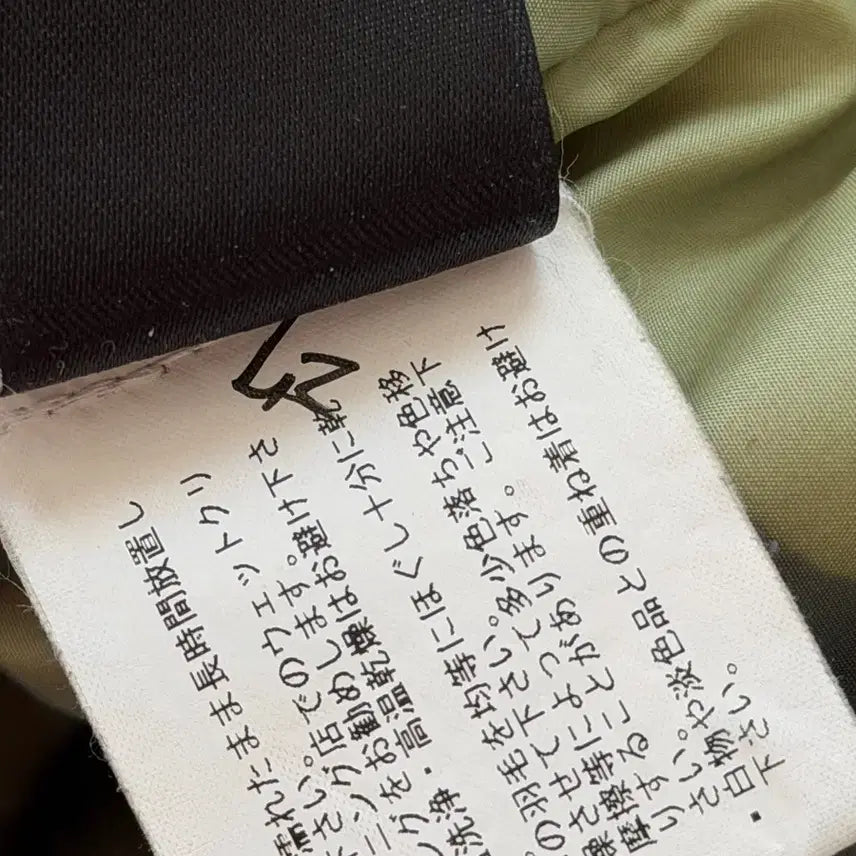 濡れたまま長時間放置し
下さい。
ング店でのウェットクリ
ニングをお勧めします。
洗浄・高温乾燥はお避け下さ
の羽毛を均等にほぐし十分に乾
燥させて下さい。多少色落ちや色移
摩擦等によって
することがあります。ご注意下
さい。
・白物や淡色品との重ね着はお避け
下さい。